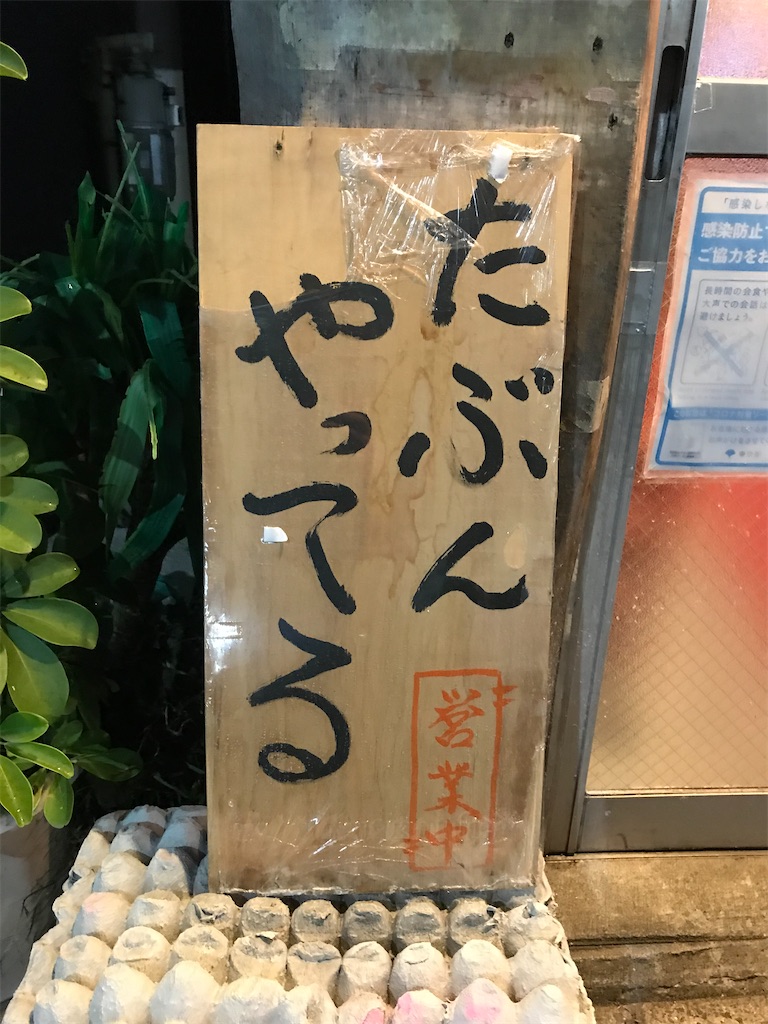 たぶん
やってる
営業中
「感染し
感染防止
ご協力をお
長時間の会食や
大声での会話は
避けましょう。